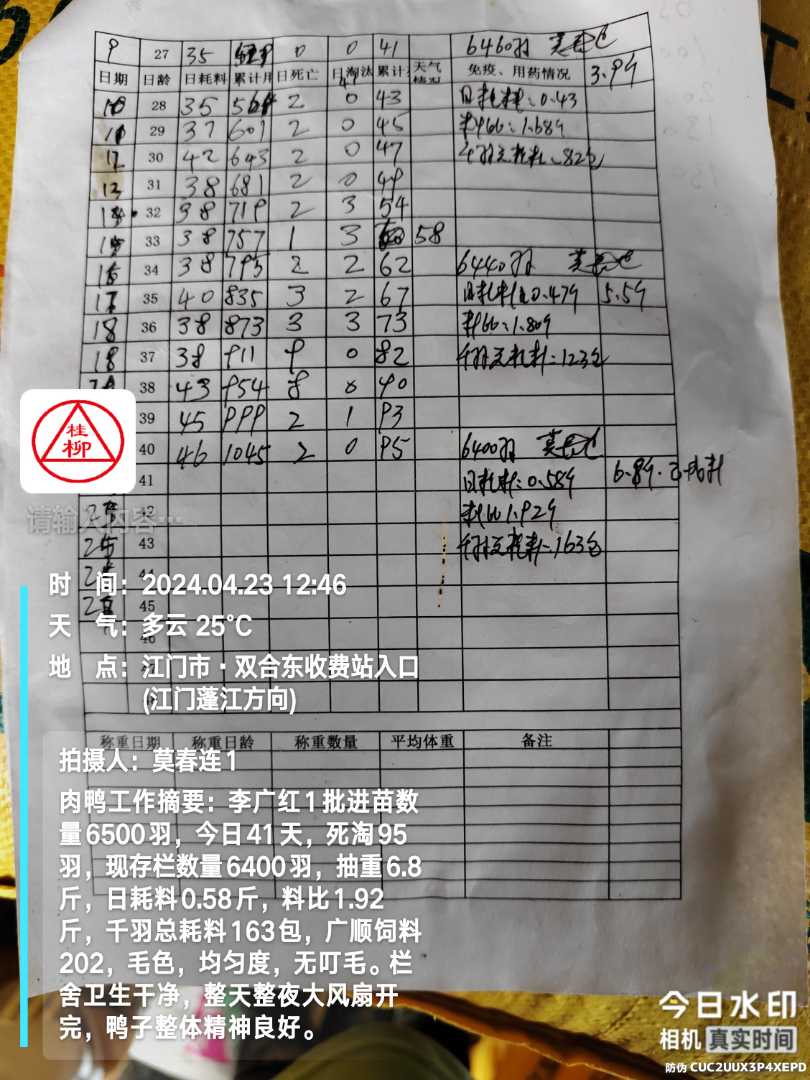 9 27 35 0 0 41 6460羽
日期 日龄 日耗料 累计用 日死亡 日淘汰 累计 天气情况 免疫、用药情况 3.9斤
10 28 35 564 2 0 43 日耗料:0.43
11 29 37 601 2 0 45 料比:1.68斤
12 30 42 643 2 0 47 千羽总耗料:82包
13 31 38 681 2 0 49
14 32 38 719 2 3 54
15 33 38 757 1 3 58
16 34 38 795 2 2 62 6440羽 莫春连
17 35 40 835 3 2 67 日耗料:0.47斤 5.5斤
18 36 38 873 3 3 73 料比:1.80斤
18 37 38 911 9 0 82 千羽总耗料:123包
38 43 954 8 0 90
39 45 999 2 1 93
40 46 1045 2 0 95 6400羽 莫春连
41 日耗料:0.58斤 6.8斤
42 料比1.92斤
43 千羽总耗料:163包
44
45
46
桂柳
请输入内容…
时 间:2024.04.23 12:46
天 气:多云 25℃
地 点:江门市·双合东收费站入口
(江门蓬江方向)
称重日期 称重日龄 称重数量 平均体重 备注
拍摄人:莫春连1
肉鸭工作摘要:李广红1批进苗数
量6500羽,今日41天,死淘95
羽,现存栏数量6400羽,抽重6.8
斤,日耗料0.58斤,料比1.92
斤,千羽总耗料163包,广顺饲料
202,毛色,均匀度,无叮毛。栏
舍卫生干净,整天整夜大风扇开
完,鸭子整体精神良好。
今日水印
相机 真实时间
防伪 CUC2UUX3P4XEPD